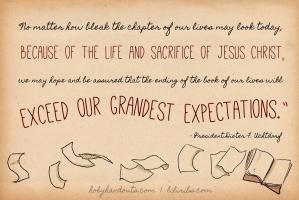 No matter how bleak the chapter of our lives may look today,
BECAUSE OF THE LIFE AND SACRIFICE OF JESUS CHRIST,
we may hope and be assured that the ending of the book of our lives will
EXCEED OUR GRANDEST EXPECTATIONS."
- President Dieter F. Uchtdorf
holyhandouts.com | liliribs.com